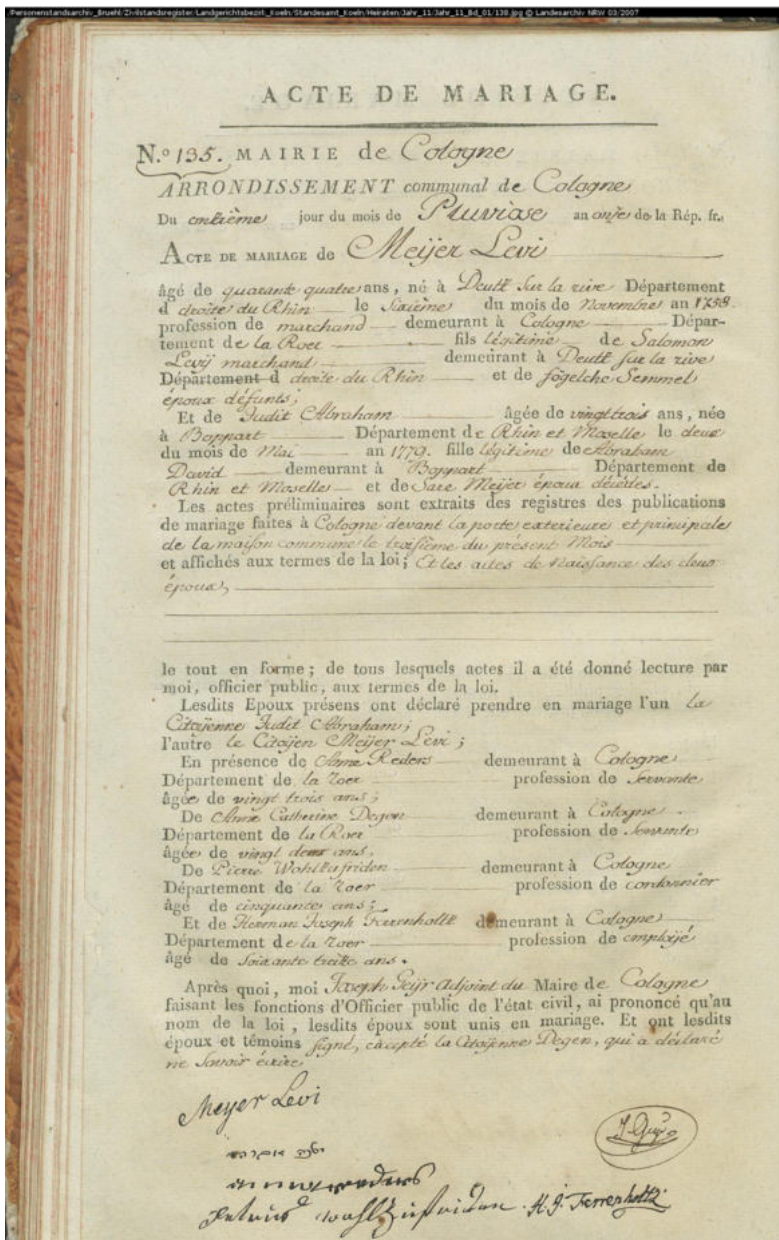 Personenstandsarchiv_Bruehl/Zivilstandsregister/Landgerichtsbezirk_Koeln/Standesamt_Koeln/Heiraten/Jahr_11/Jahr_11_Bd_01/138.jpg © Landesarchiv NRW 03/2007
ACTE DE MARIAGE.
N.º 135. MAIRIE de Cologne
ARRONDISSEMENT communal de Cologne
Du onzième jour du mois de Pluviose an onze de la Rép. fr.
ACTE DE MARIAGE de Meijer Levi
âgé de quarante quatre ans, né à Deutz sur la rive Département
d droite du Rhin le Sixième du mois de Novembre an 1758.
profession de marchand demeurant à Cologne Dépar-
tement de la Roer fils légitime de Salomon
Levij marchand demeurant à Deutz sur la rive
Département d droite du Rhin et de fögelche Semmel
époux défunts;
Et de Judit Abraham âgée de vingt trois ans, née
à Boppart Département de Rhin et Moselle le deux
du mois de Mai an 1779. fille légitime de Abraham
David demeurant à Boppart Département de
Rhin et Moselle et de Sare Meijer époux décédés.
Les actes préliminaires sont extraits des registres des publications
de mariage faites à Cologne devant la porte exterieure et principale
de la maison commune le troisième du présent Mois
et affichés aux termes de la loi; Et les actes de Naissance des deux
époux,
le tout en forme; de tous lesquels actes il a été donné lecture par
moi, officier public, aux termes de la loi.
Lesdits Epoux présens ont déclaré prendre en mariage l'un la
Citoÿenne Judit Abraham;
l'autre le Citoÿen Meijer Levi;
En présence de Anne Reders demeurant à Cologne
Département de la Roer profession de Servante
âgée de vingt trois ans;
De Anne Catherine Degen demeurant à Cologne
Département de la Roer profession de Servante
âgée de vingt deux ans.
De Pierre Wohlzufriden demeurant à Cologne
Département de la Roer profession de cordonnier
âgé de cinquante ans;
Et de Herman Joseph Ferrenholtz demeurant à Cologne
Département de la Roer profession de emploijé
âgé de Soixante treize ans.
Après quoi, moi Joseph Geijr Adjoint du Maire de Cologne
faisant les fonctions d'Officier public de l'état civil, ai prononcé qu'au
nom de la loi, lesdits époux sont unis en mariage. Et ont lesdits
époux et témoins signé, excepté la Citoÿenne Degen, qui a déclaré
ne savoir écrire
Meyer Levi
H. J. Ferrenholtz